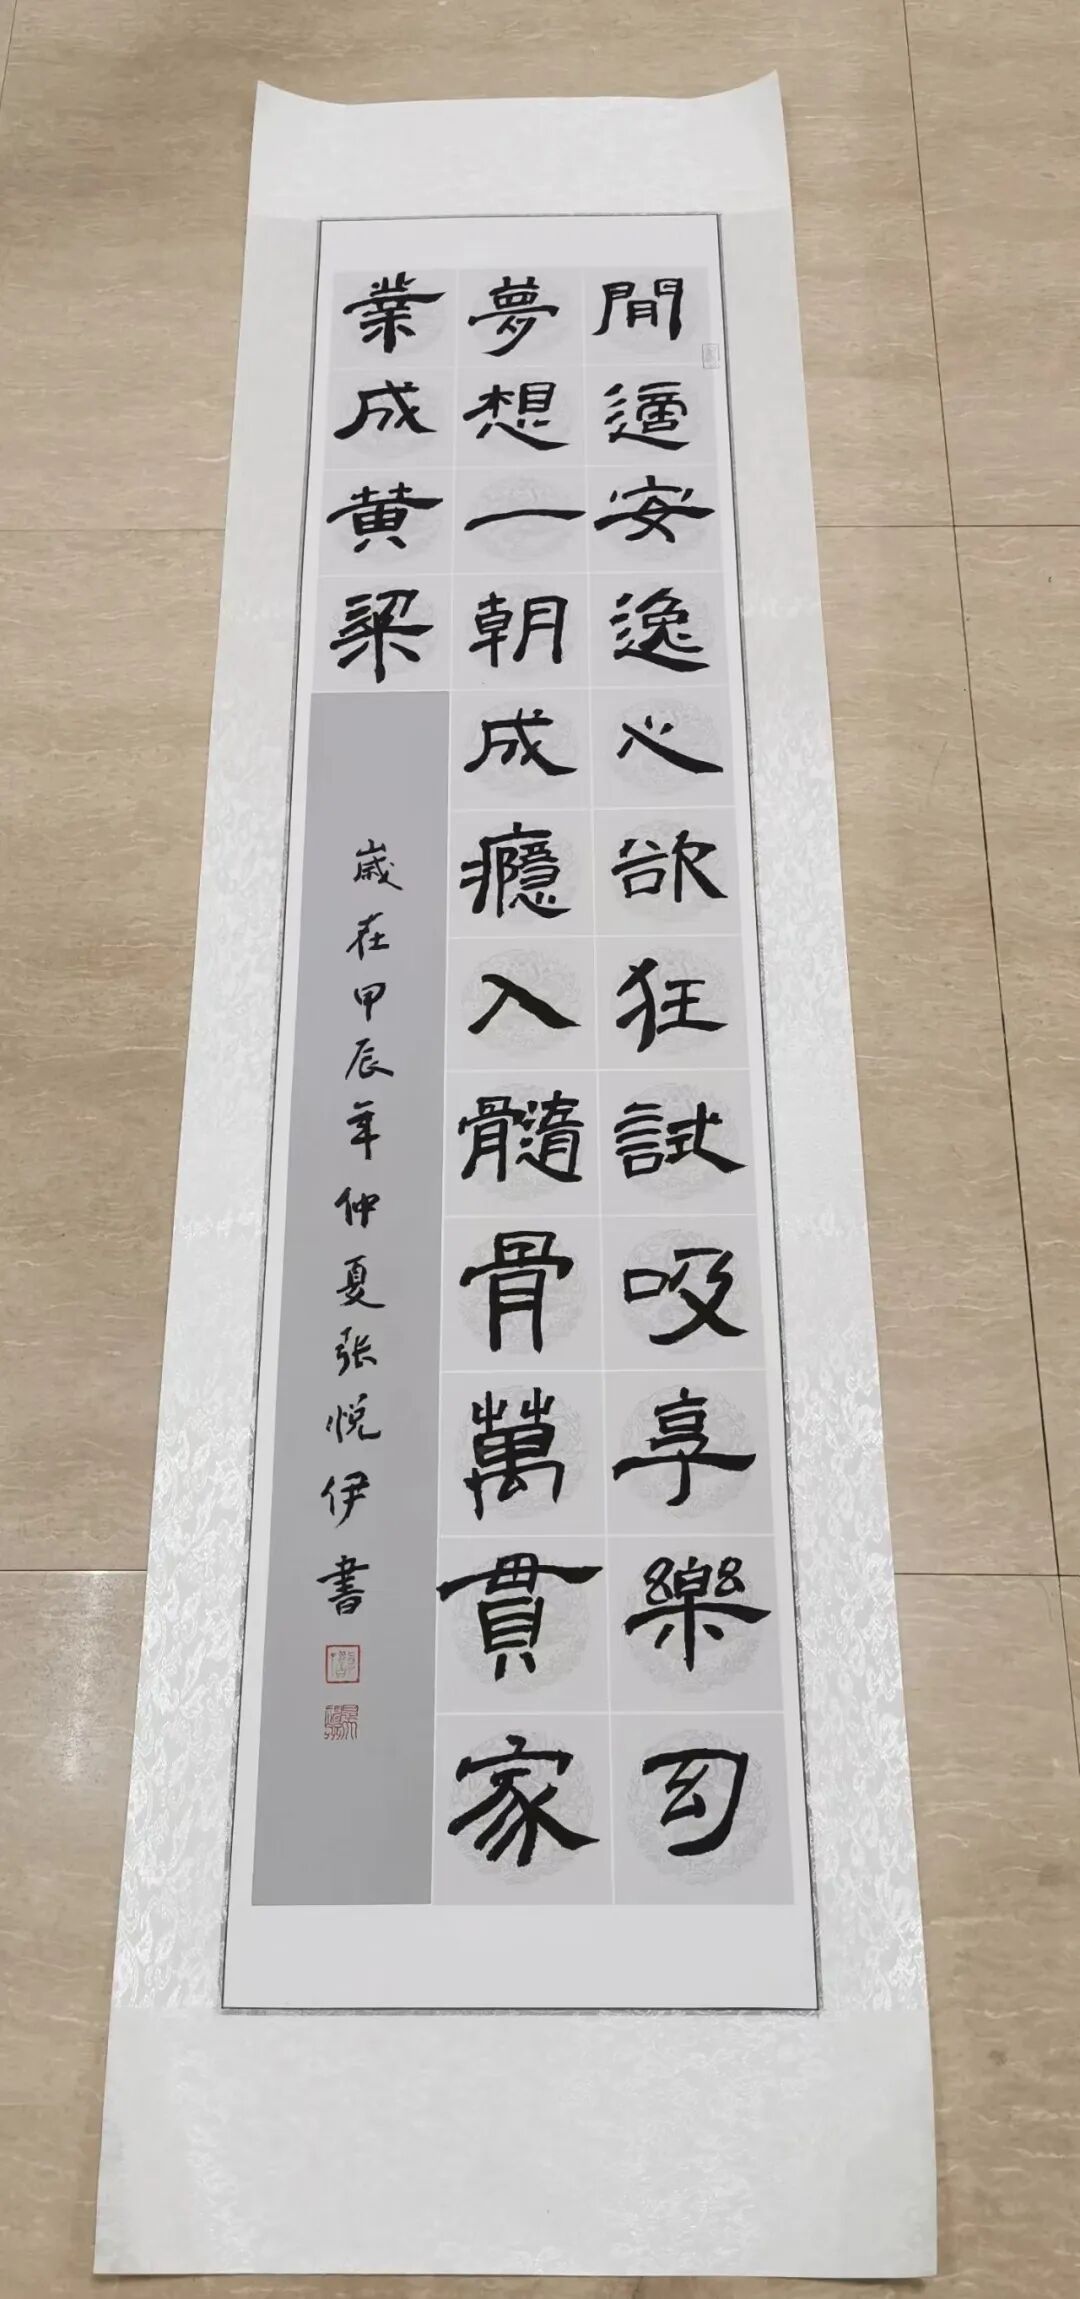 閒適安逸心欲狂試吸享樂幻
夢想一朝成癮入髓骨萬貫家
業成黄粱
歲在甲辰年仲夏张悦伊書